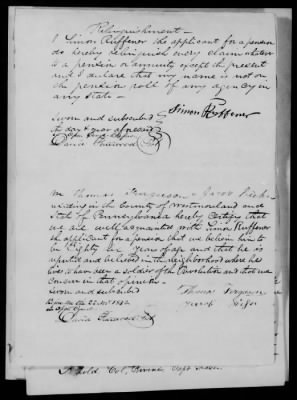 Relinquishment —
I Simon Ruffener the applicant for a pension
do hereby relinquish every claim whatever
to a pension or annuity except the present
and I declare that my name is not on
the pension roll of any agency in
any State —
Simon Ruffener
Sworn and subscribed
the day & year aforesaid
David
We Thomas Ferguson & Jacob
residing in the County of Westmoreland and
State of Pennsylvania hereby Certify that
we are well acquainted with Simon Ruffener
the applicant for a pension that we believe him to
be Eighty six years of age and that he is
reputed and believed in the neighborhood where he
lives to have been a soldier of the Revolution and that we
concur in that opinion
Sworn and subscribed
before me the 22 1832
Thomas Ferguson
Jacob
David
Col,